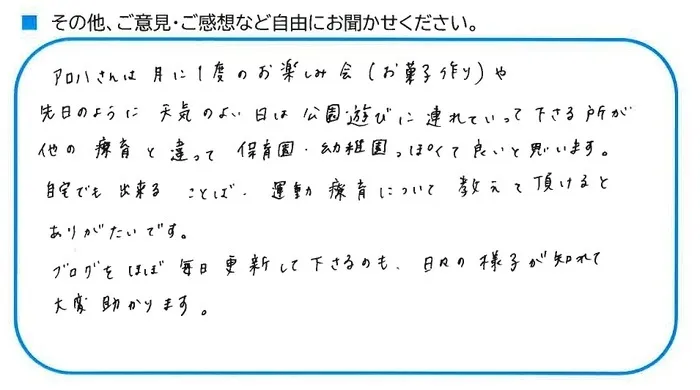 ■ その他、ご意見・ご感想など自由にお聞かせください。
アロハさんは月に1度のお楽しみ会(お菓子作り)や
先日のように天気のよい日は公園遊びに連れていって下さる所が
他の療育と違って保育園・幼稚園っぽくて良いと思います。
自宅でも出来ることば・運動療育について教えて頂けると
ありがたいです。
ブログをほぼ毎日更新して下さるのも、日々の様子が知れて
大変助かります。